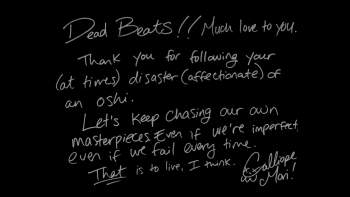 Dead Beats!! Much love to you.
Thank you for following your
(at times) disaster (affectionate) of
an oshi.
Let's keep chasing our own
masterpieces. Even if we're imperfect,
even if we fail every time.
That is to live, I think.
Calliope
Mori!